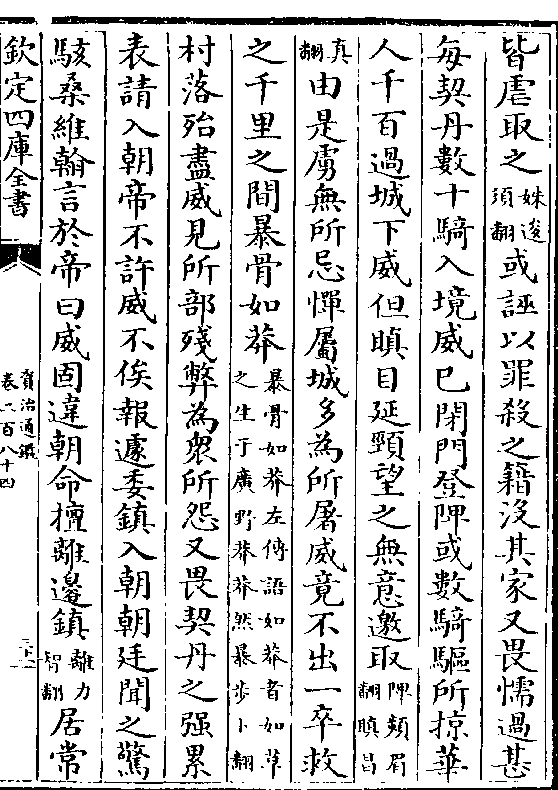 皆虐取之姝遂須翻或誣以罪殺之籍沒其家又畏懦過甚
每契丹數十騎入境威已閉門登陴或數騎驅所掠華
人千百過城下威但瞋目延頸望之無意邀取陴頻眉翻瞋昌
真翻由是虜無所忌憚屬城多為所屠威竟不出一卒救
之千里之間暴骨如莽暴骨如莽左傳語如莽者如草之生于廣野莽莽然暴步卜翻
村落殆盡威見所部殘弊為衆所怨又畏契丹之强累
表請入朝帝不許威不俟報遽委鎮入朝朝廷聞之驚
駭桑維翰言於帝曰威固違朝命擅離邊鎮離力智翻居常
欽定四庫全書
資治通鑑
卷二百八十四